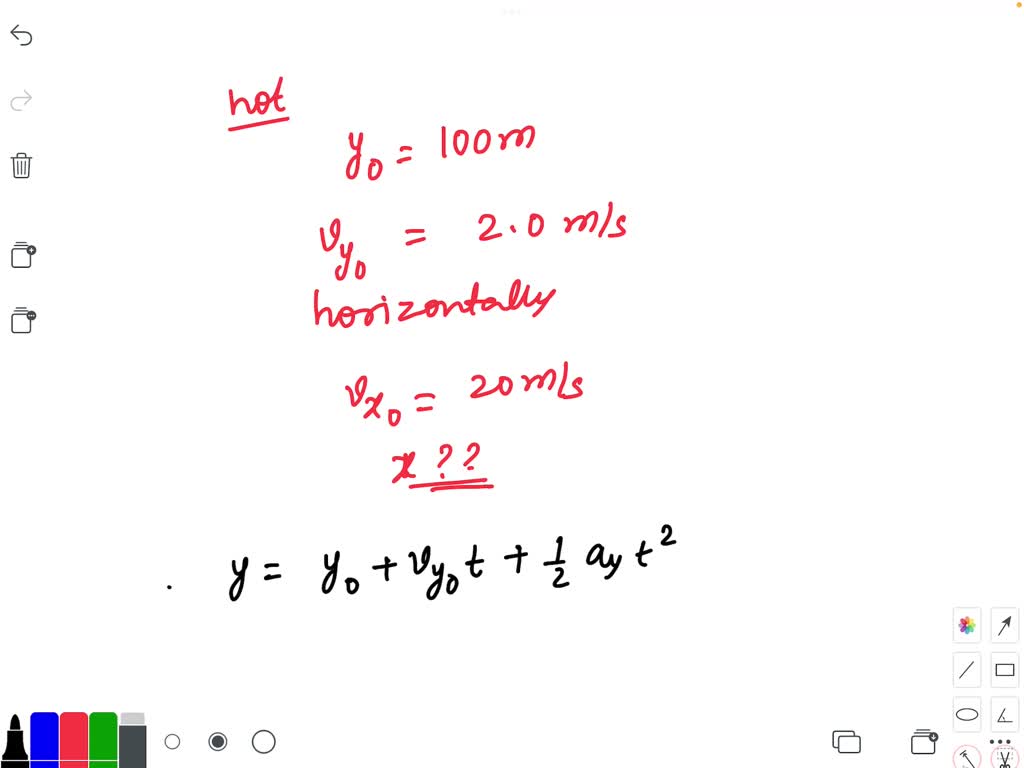 hot
y₀ = 100m
v_y₀ = 2.0 m/s
horizontally
v_x₀ = 20 m/s
x ??
y = y₀ + v_y₀ t + ½ a_y t²